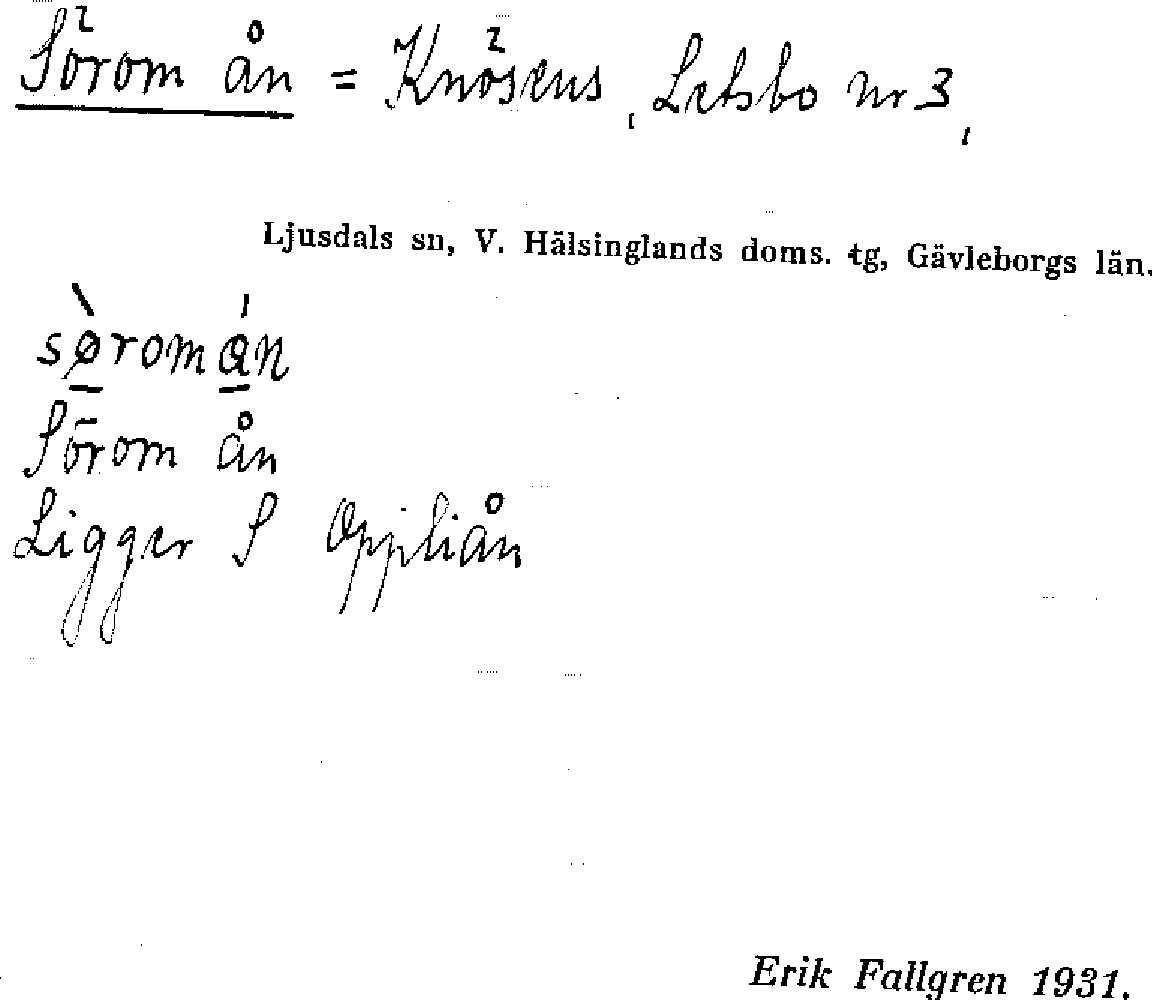 Sörom ån = Knösens, Letsbo nr 3,
Ljusdals sn, V. Hälsinglands doms. tg, Gävleborgs län.
sø̠̀romɑ̠́n
Sörom ån
Ligger S Oppliån
Erik Fallgren 1931.